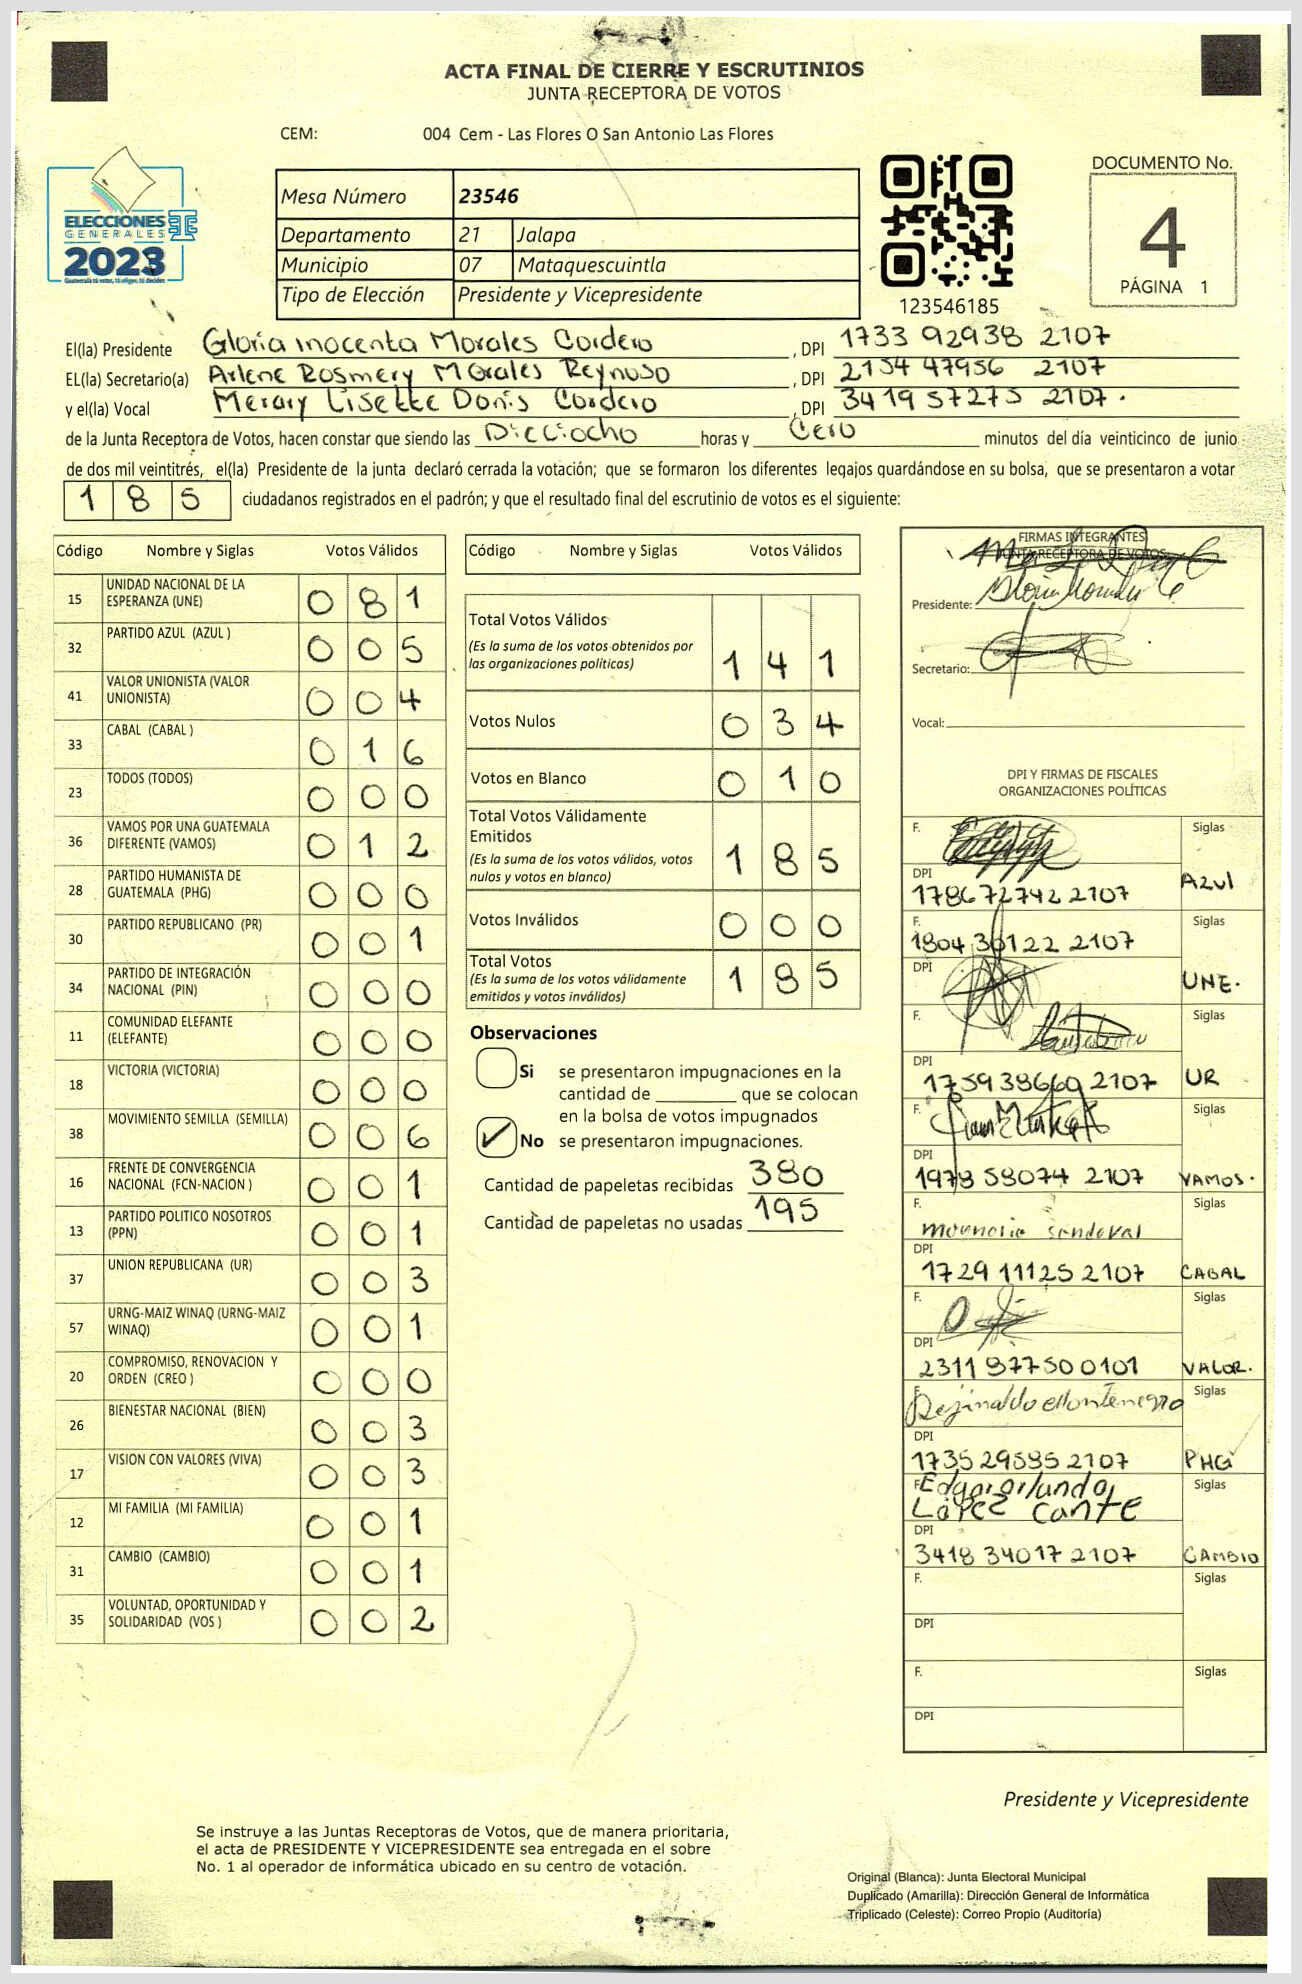 ACTA FINAL DE CIERRE Y ESCRUTINIOS
JUNTA RECEPTORA DE VOTOS
CEM: 004 Cem - Las Flores O San Antonio Las Flores
ELECCIONES
GENERALES
2023
Mesa Número 23546
Departamento 21 Jalapa
Municipio 07 Mataquescuintla
Tipo de Elección Presidente y Vicepresidente
123546185
DOCUMENTO No.
4
PÁGINA 1
El(la) Presidente Gloria inocenta Morales Cordero , DPI 1733 92938 2107
EL(la) Secretario(a) Arlene Rosmery Morales Reynoso , DPI 2154 47956 2107
y el(la) Vocal Merary Lisette Donis Cordero , DPI 3419 57275 2107.
de la Junta Receptora de Votos, hacen constar que siendo las Dieciocho horas y Cero minutos del día veinticinco de junio
de dos mil veintitrés, el(la) Presidente de la junta declaró cerrada la votación; que se formaron los diferentes legajos quardándose en su bolsa, que se presentaron a votar
185 ciudadanos registrados en el padrón; y que el resultado final del escrutinio de votos es el siguiente:
Código Nombre y Siglas Votos Válidos
15 UNIDAD NACIONAL DE LA ESPERANZA (UNE) 081
32 PARTIDO AZUL (AZUL ) 005
41 VALOR UNIONISTA (VALOR UNIONISTA) 004
33 CABAL (CABAL ) 016
23 TODOS (TODOS) 000
36 VAMOS POR UNA GUATEMALA DIFERENTE (VAMOS) 012
28 PARTIDO HUMANISTA DE GUATEMALA (PHG) 000
30 PARTIDO REPUBLICANO (PR) 001
34 PARTIDO DE INTEGRACIÓN NACIONAL (PIN) 000
11 COMUNIDAD ELEFANTE (ELEFANTE) 000
18 VICTORIA (VICTORIA) 000
38 MOVIMIENTO SEMILLA (SEMILLA) 006
16 FRENTE DE CONVERGENCIA NACIONAL (FCN-NACION ) 001
13 PARTIDO POLITICO NOSOTROS (PPN) 001
37 UNION REPUBLICANA (UR) 003
57 URNG-MAIZ WINAQ (URNG-MAIZ WINAQ) 001
20 COMPROMISO, RENOVACION Y ORDEN (CREO ) 000
26 BIENESTAR NACIONAL (BIEN) 003
17 VISION CON VALORES (VIVA) 003
12 MI FAMILIA (MI FAMILIA) 001
31 CAMBIO (CAMBIO) 001
35 VOLUNTAD, OPORTUNIDAD Y SOLIDARIDAD (VOS ) 002
Código Nombre y Siglas Votos Válidos
Total Votos Válidos 141
(Es la suma de los votos obtenidos por
las organizaciones políticas)
Votos Nulos 034
Votos en Blanco 010
Total Votos Válidamente
Emitidos 185
(Es la suma de los votos válidos, votos
nulos y votos en blanco)
Votos Inválidos 000
Total Votos 185
(Es la suma de los votos válidamente
emitidos y votos inválidos)
Observaciones
Si se presentaron impugnaciones en la
cantidad de ________ que se colocan
en la bolsa de votos impugnados
✓ No se presentaron impugnaciones.
Cantidad de papeletas recibidas 380
Cantidad de papeletas no usadas 195
FIRMAS INTEGRANTES
JUNTA RECEPTORA DE VOTOS
Presidente:
Secretario:
Vocal:
DPI Y FIRMAS DE FISCALES
ORGANIZACIONES POLÍTICAS
F. Siglas
DPI 1786 72742 2107 Azul
F. Siglas
DPI 1804 30122 2107 UNE.
F. Siglas
DPI 1759 38660 2107 UR
F. Siglas
DPI 1978 58074 2107 VAMOS.
F. sandoval Siglas
DPI 1729 11125 2107 CABAL
F. Siglas
DPI 2311 97750 0101 VALOR.
F. Rejinaldo Montenegro Siglas
DPI 1735 29585 2107 PHG
F. Edgar orlando Siglas
López Cante
DPI 3418 34017 2107 CAMBIO
F. Siglas
DPI
F. Siglas
DPI
Presidente y Vicepresidente
Se instruye a las Juntas Receptoras de Votos, que de manera prioritaria,
el acta de PRESIDENTE Y VICEPRESIDENTE sea entregada en el sobre
No. 1 al operador de informática ubicado en su centro de votación.
Original (Blanca): Junta Electoral Municipal
Duplicado (Amarilla): Dirección General de Informática
Triplicado (Celeste): Correo Propio (Auditoría)